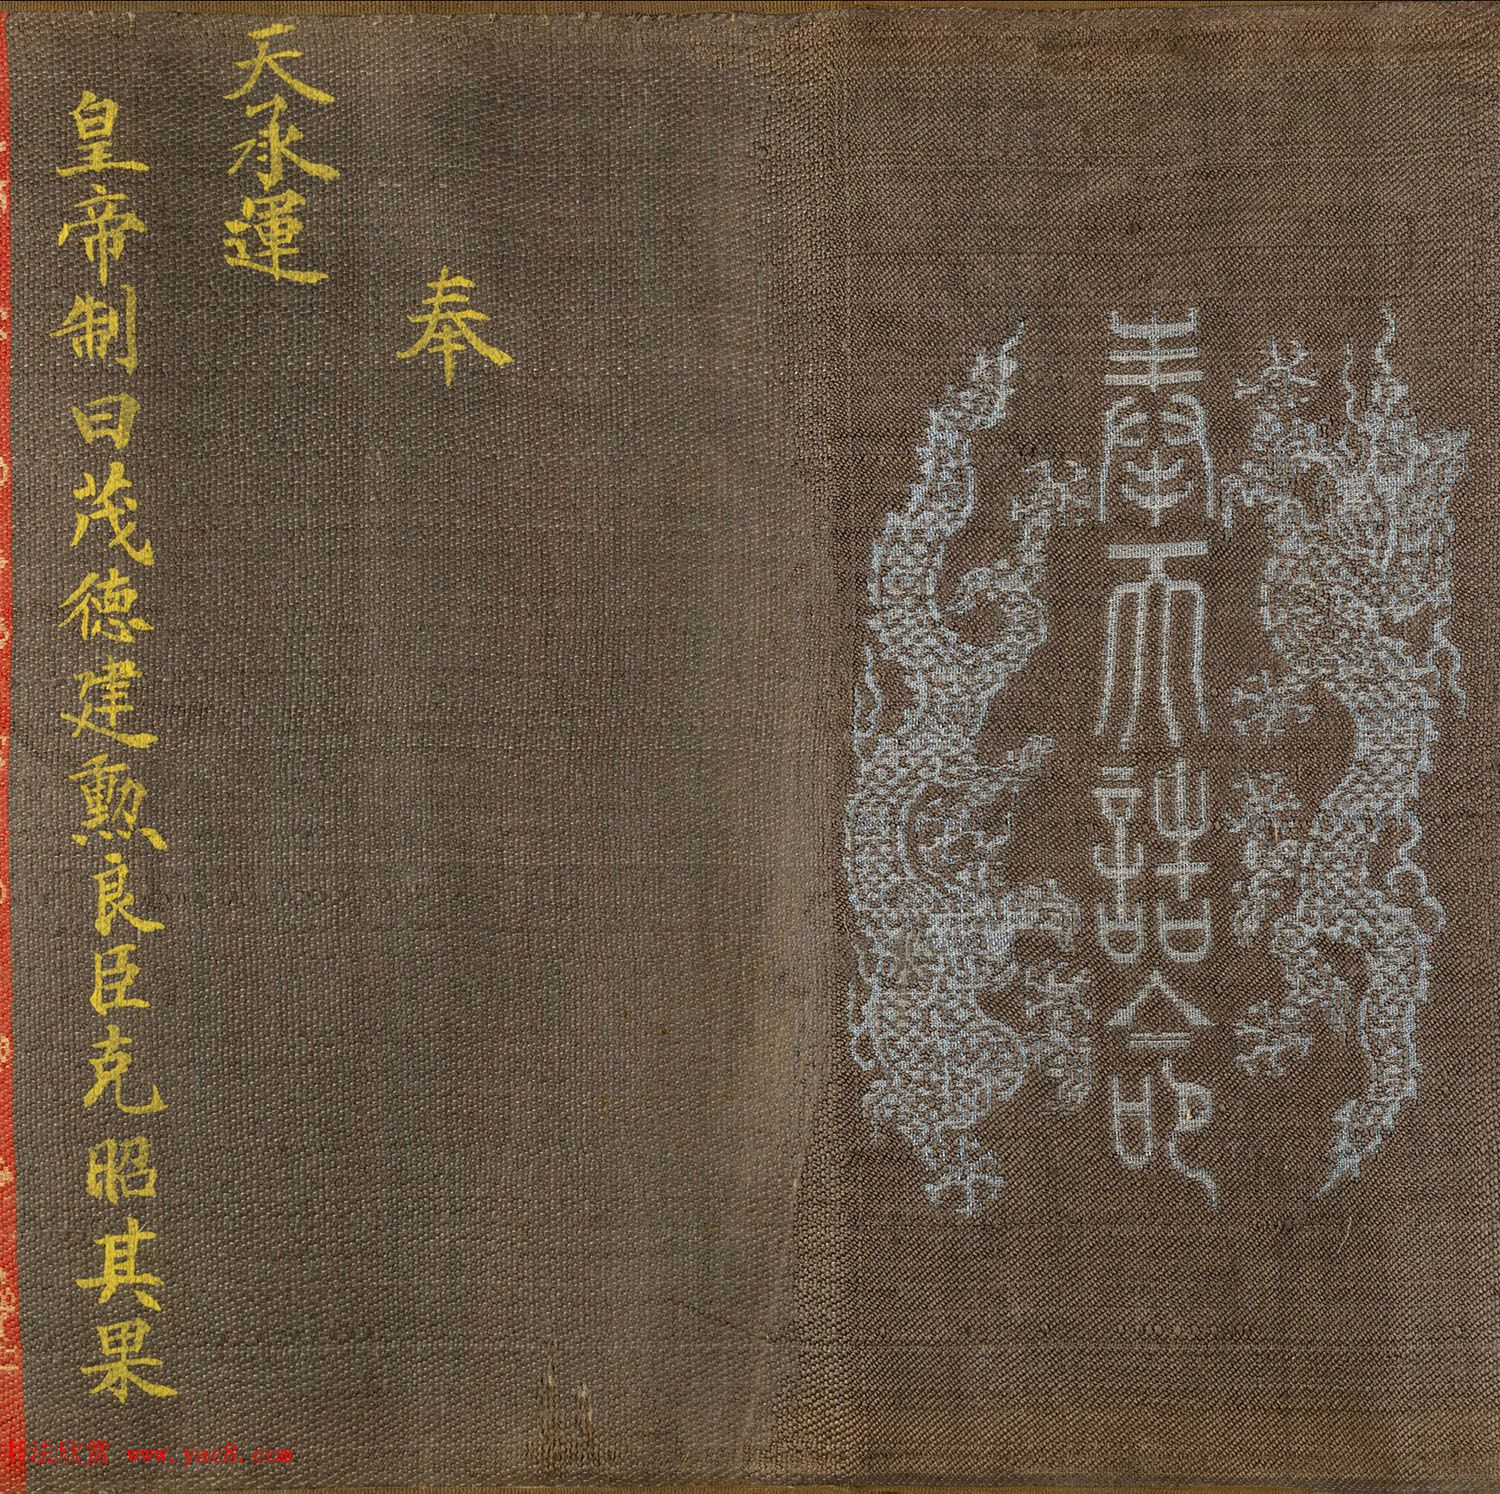 奉天誥命
奉
天承運
皇帝制曰茂德建勲良臣克昭其果
書法欣赏 www.yac8.com